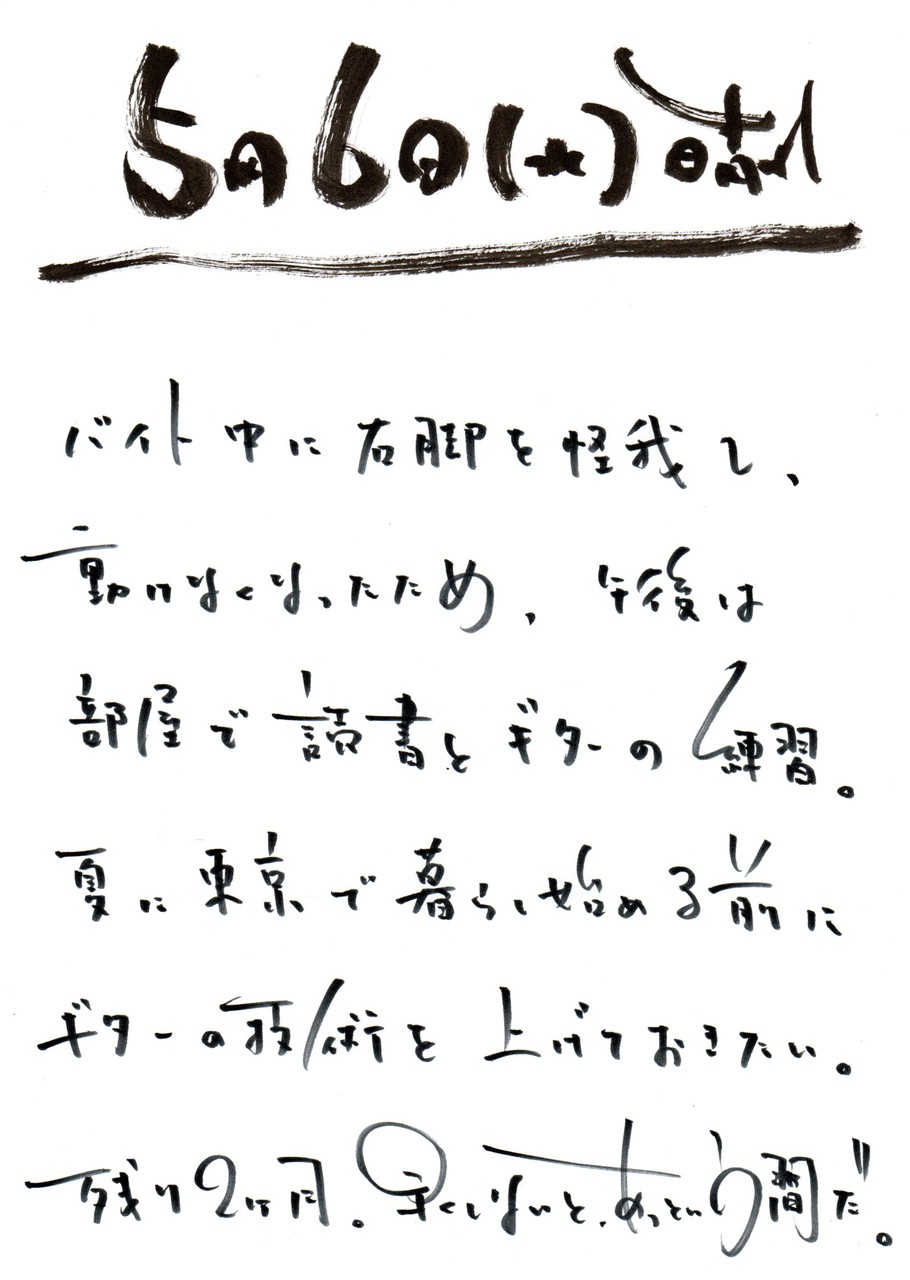 5月6日(水) 晴れ
バイト中に右脚を怪我し、
動けなくなったため、午後は
部屋で読書とギターの練習。
夏に東京で暮らし始める前に
ギターの技術を上げておきたい。
残り2ヶ月。早くしないと、あっという間だ。